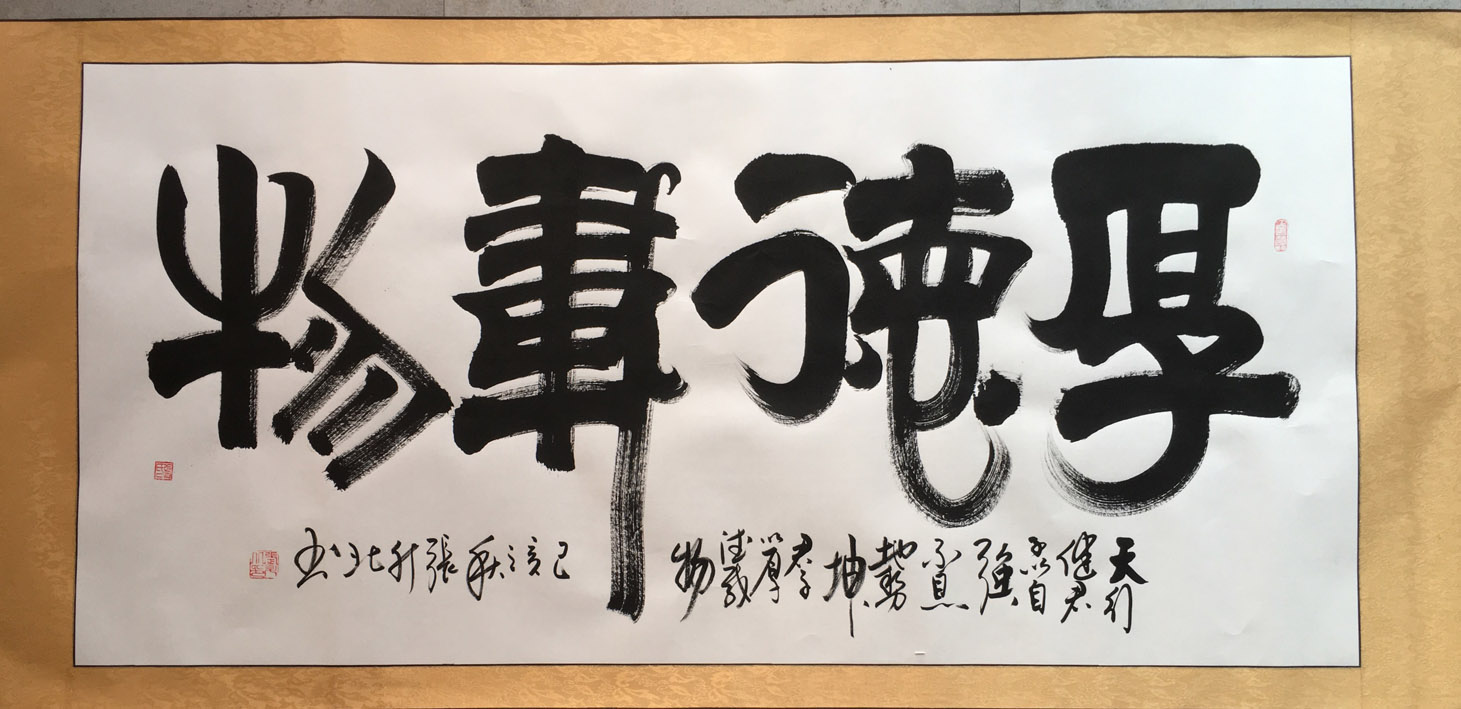 厚德載物
天行
健君
子以自
強不
息
地勢
坤
君子
以厚
德載
物
己亥之秋張升北書